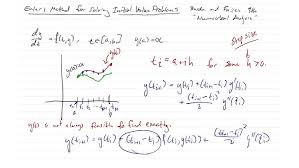 Euler's Method for Solving Initial Value Problems
Burden and Faires 9th
"Numerical Analysis"
dy/dt = f(t,y), t∈[a,b] y(a)=α
step size
t_i = a+ih for some h>0.
y(t)
y(t_{i+1}) = y(t_i) + (t_{i+1}-t_i) y'(t_i)
+ (t_{i+1}-t_i)²/2 y''(ξ_i)
y(t) is not always feasible to find exactly.
y(t_{i+1}) = y(t_i) + (t_{i+1}-t_i) f(t_i,y(t_i)) + (t_{i+1}-t_i)²/2 y''(ξ_i)